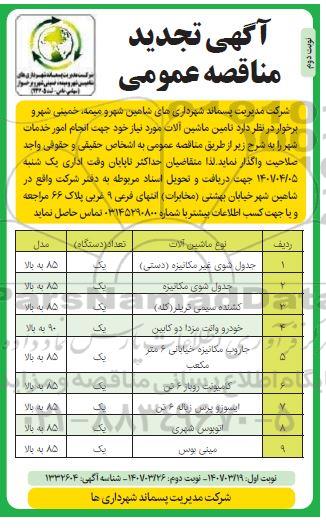 آگهی تجدید
مناقصه عمومی
نوبت دوم
شرکت مدیریت پسماند شهرداری های
شاهین شهر و میمه، خمینی شهر و برخوار
(سهامی خاص - ثبت ۲۳۲۰۵)
شرکت مدیریت پسماند شهرداری های شاهین شهر و میمه، خمینی شهر و
برخوار در نظر دارد تامین ماشین آلات مورد نیاز خود جهت انجام امور خدمات
شهر را به شرح زیر از طریق مناقصه عمومی به اشخاص حقیقی و حقوقی واجد
صلاحیت واگذار نماید. لذا متقاضیان حداکثر تاپایان وقت اداری یک شنبه
۱۴۰۷/۰۴/۰۵ جهت دریافت و تحویل اسناد مربوطه به دفتر شرکت واقع در
شاهین شهر خیابان بهشتی (مخابرات) انتهای فرعی ۹ غربی پلاک ۶۶ مراجعه
و یا جهت کسب اطلاعات بیشتر با شماره ۰۳۱۴۵۲۹۰۸۰۰ تماس حاصل نماید
ردیف نوع ماشین آلات تعداد(دستگاه) مدل
۱ جدول شوی غیر مکانیزه (دستی) یک ۸۵ به بالا
۲ جدول شوی مکانیزه یک ۸۵ به بالا
۳ کشنده سیمی تریلر(کله) یک ۸۵ به بالا
۴ خودرو وانت مزدا دو کابین یک ۹۰ به بالا
۵ جاروب مکانیزه خیابانی ۶ متر مکعب یک ۸۵ به بالا
۶ کامیونت روباز ۶ تن یک ۸۵ به بالا
۷ ایسوزو پرس زباله ۶ تن یک ۸۵ به بالا
۸ اتوبوس شهری یک ۸۵ به بالا
۹ مینی بوس یک ۸۵ به بالا
نوبت اول: ۱۴۰۷/۰۳/۱۹- نوبت دوم: ۱۴۰۷/۰۳/۲۶- شناسه آگهی: ۱۳۳۲۶۰۴
شرکت مدیریت پسماند شهرداری ها